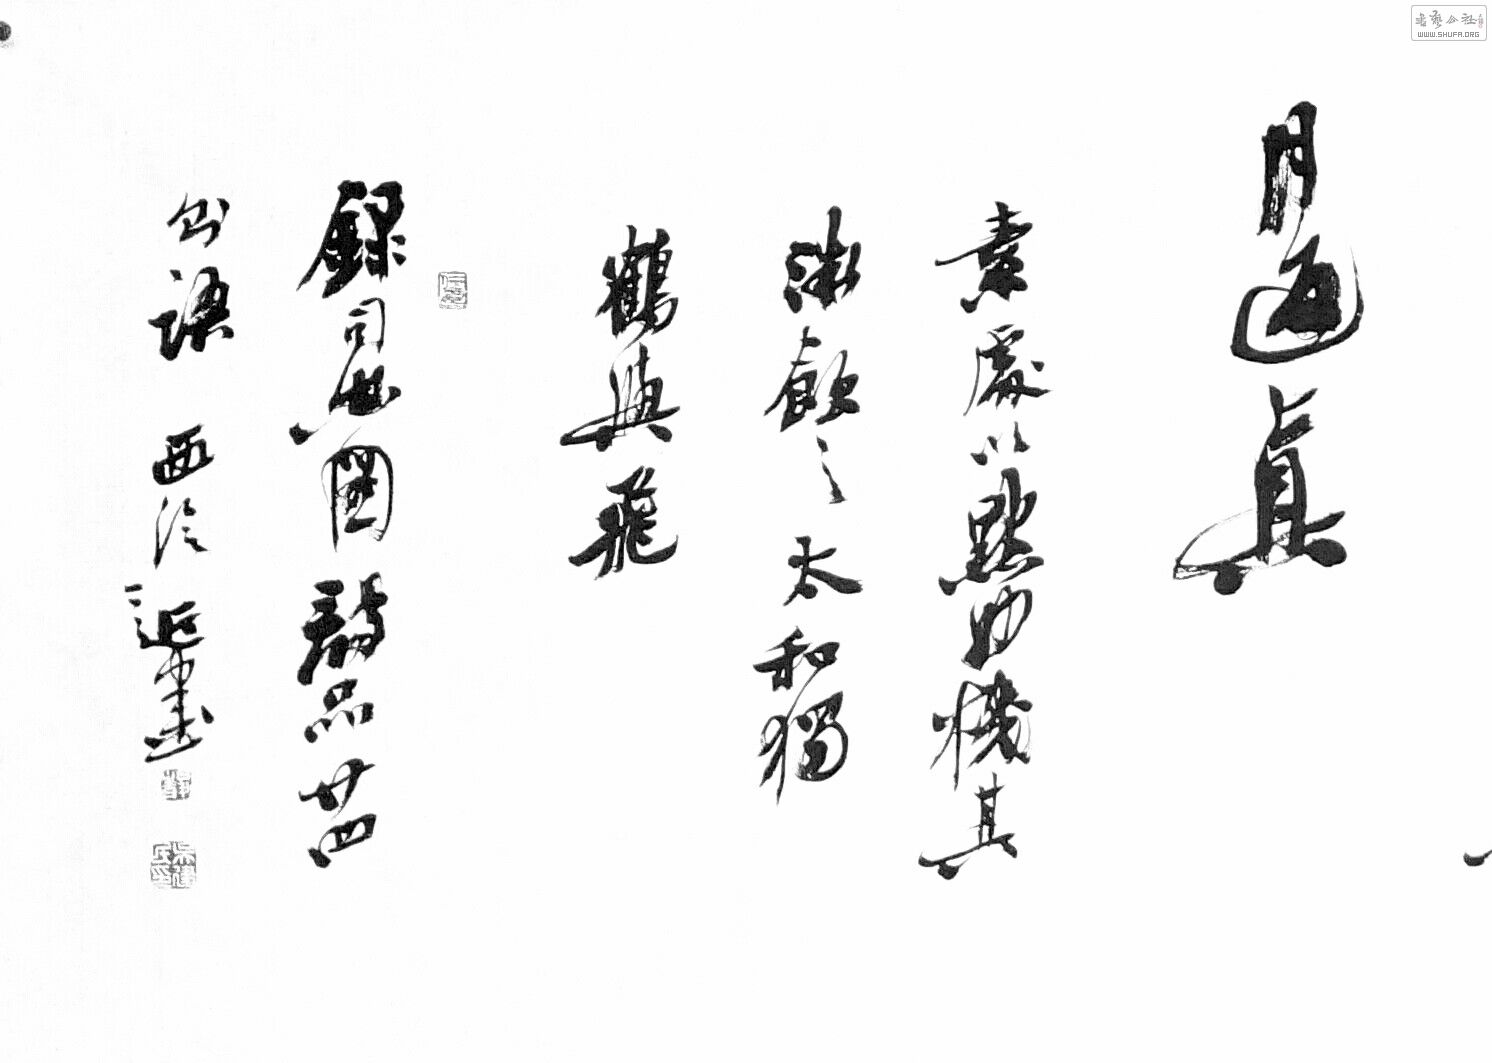 書藝公社
WWW.SHUFA.ORG
真
素處以默妙機其
微飲之太和獨
鶴與飛
錄司空圖詩品廿四
則語 西泠 書